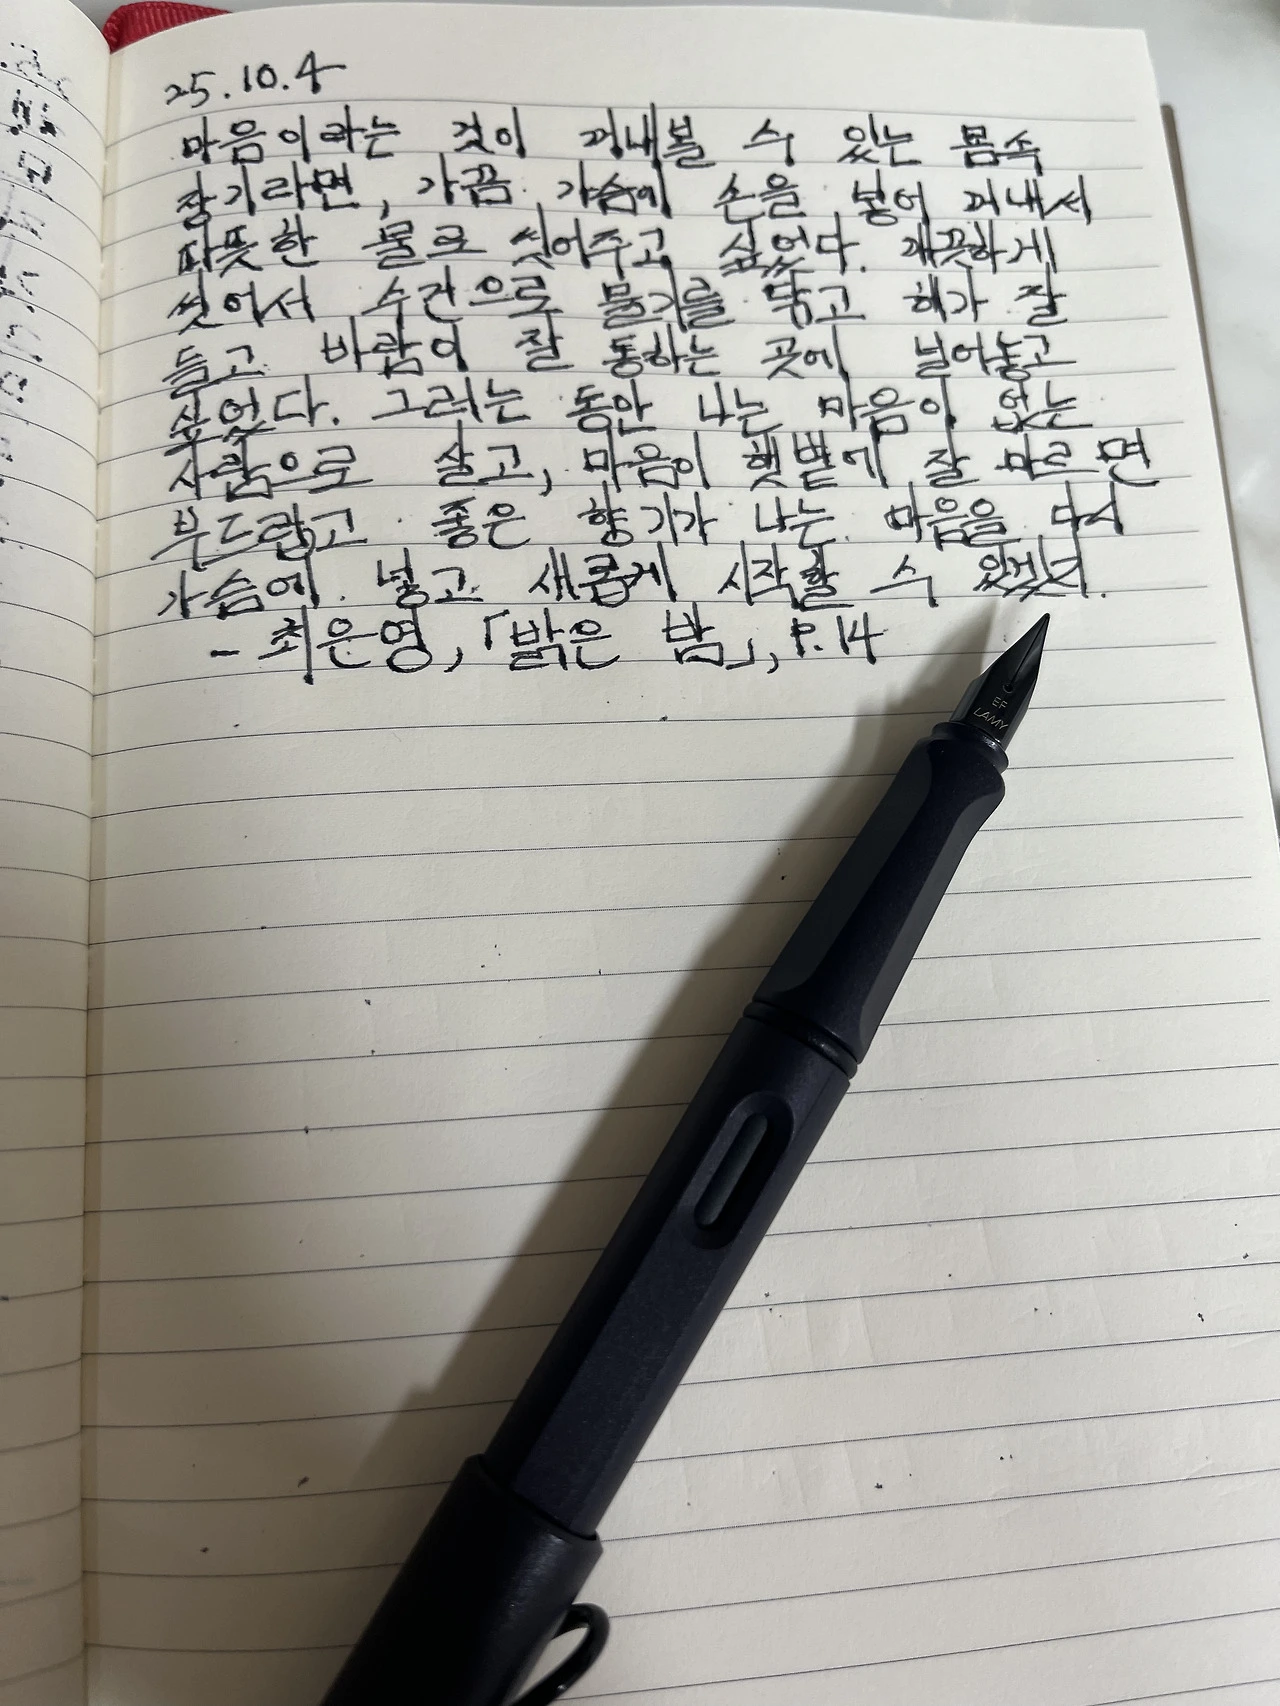 25.10.4
마음이라는 것이 꺼내볼 수 있는 몸속
장기라면, 가끔 가슴에 손을 넣어 꺼내서
따뜻한 물로 씻어주고 싶었다. 깨끗하게
씻어서 수건으로 물기를 닦고 해가 잘
들고 바람이 잘 통하는 곳에 널어놓고
싶었다. 그러는 동안 나는 마음이 없는
사람으로 살고, 마음이 햇볕에 잘 마르면
부드럽고 좋은 향기가 나는 마음을 다시
가슴에 넣고 새롭게 시작할 수 있겠지.
- 최은영, 「밝은 밤」, P.14
EF
LAMY